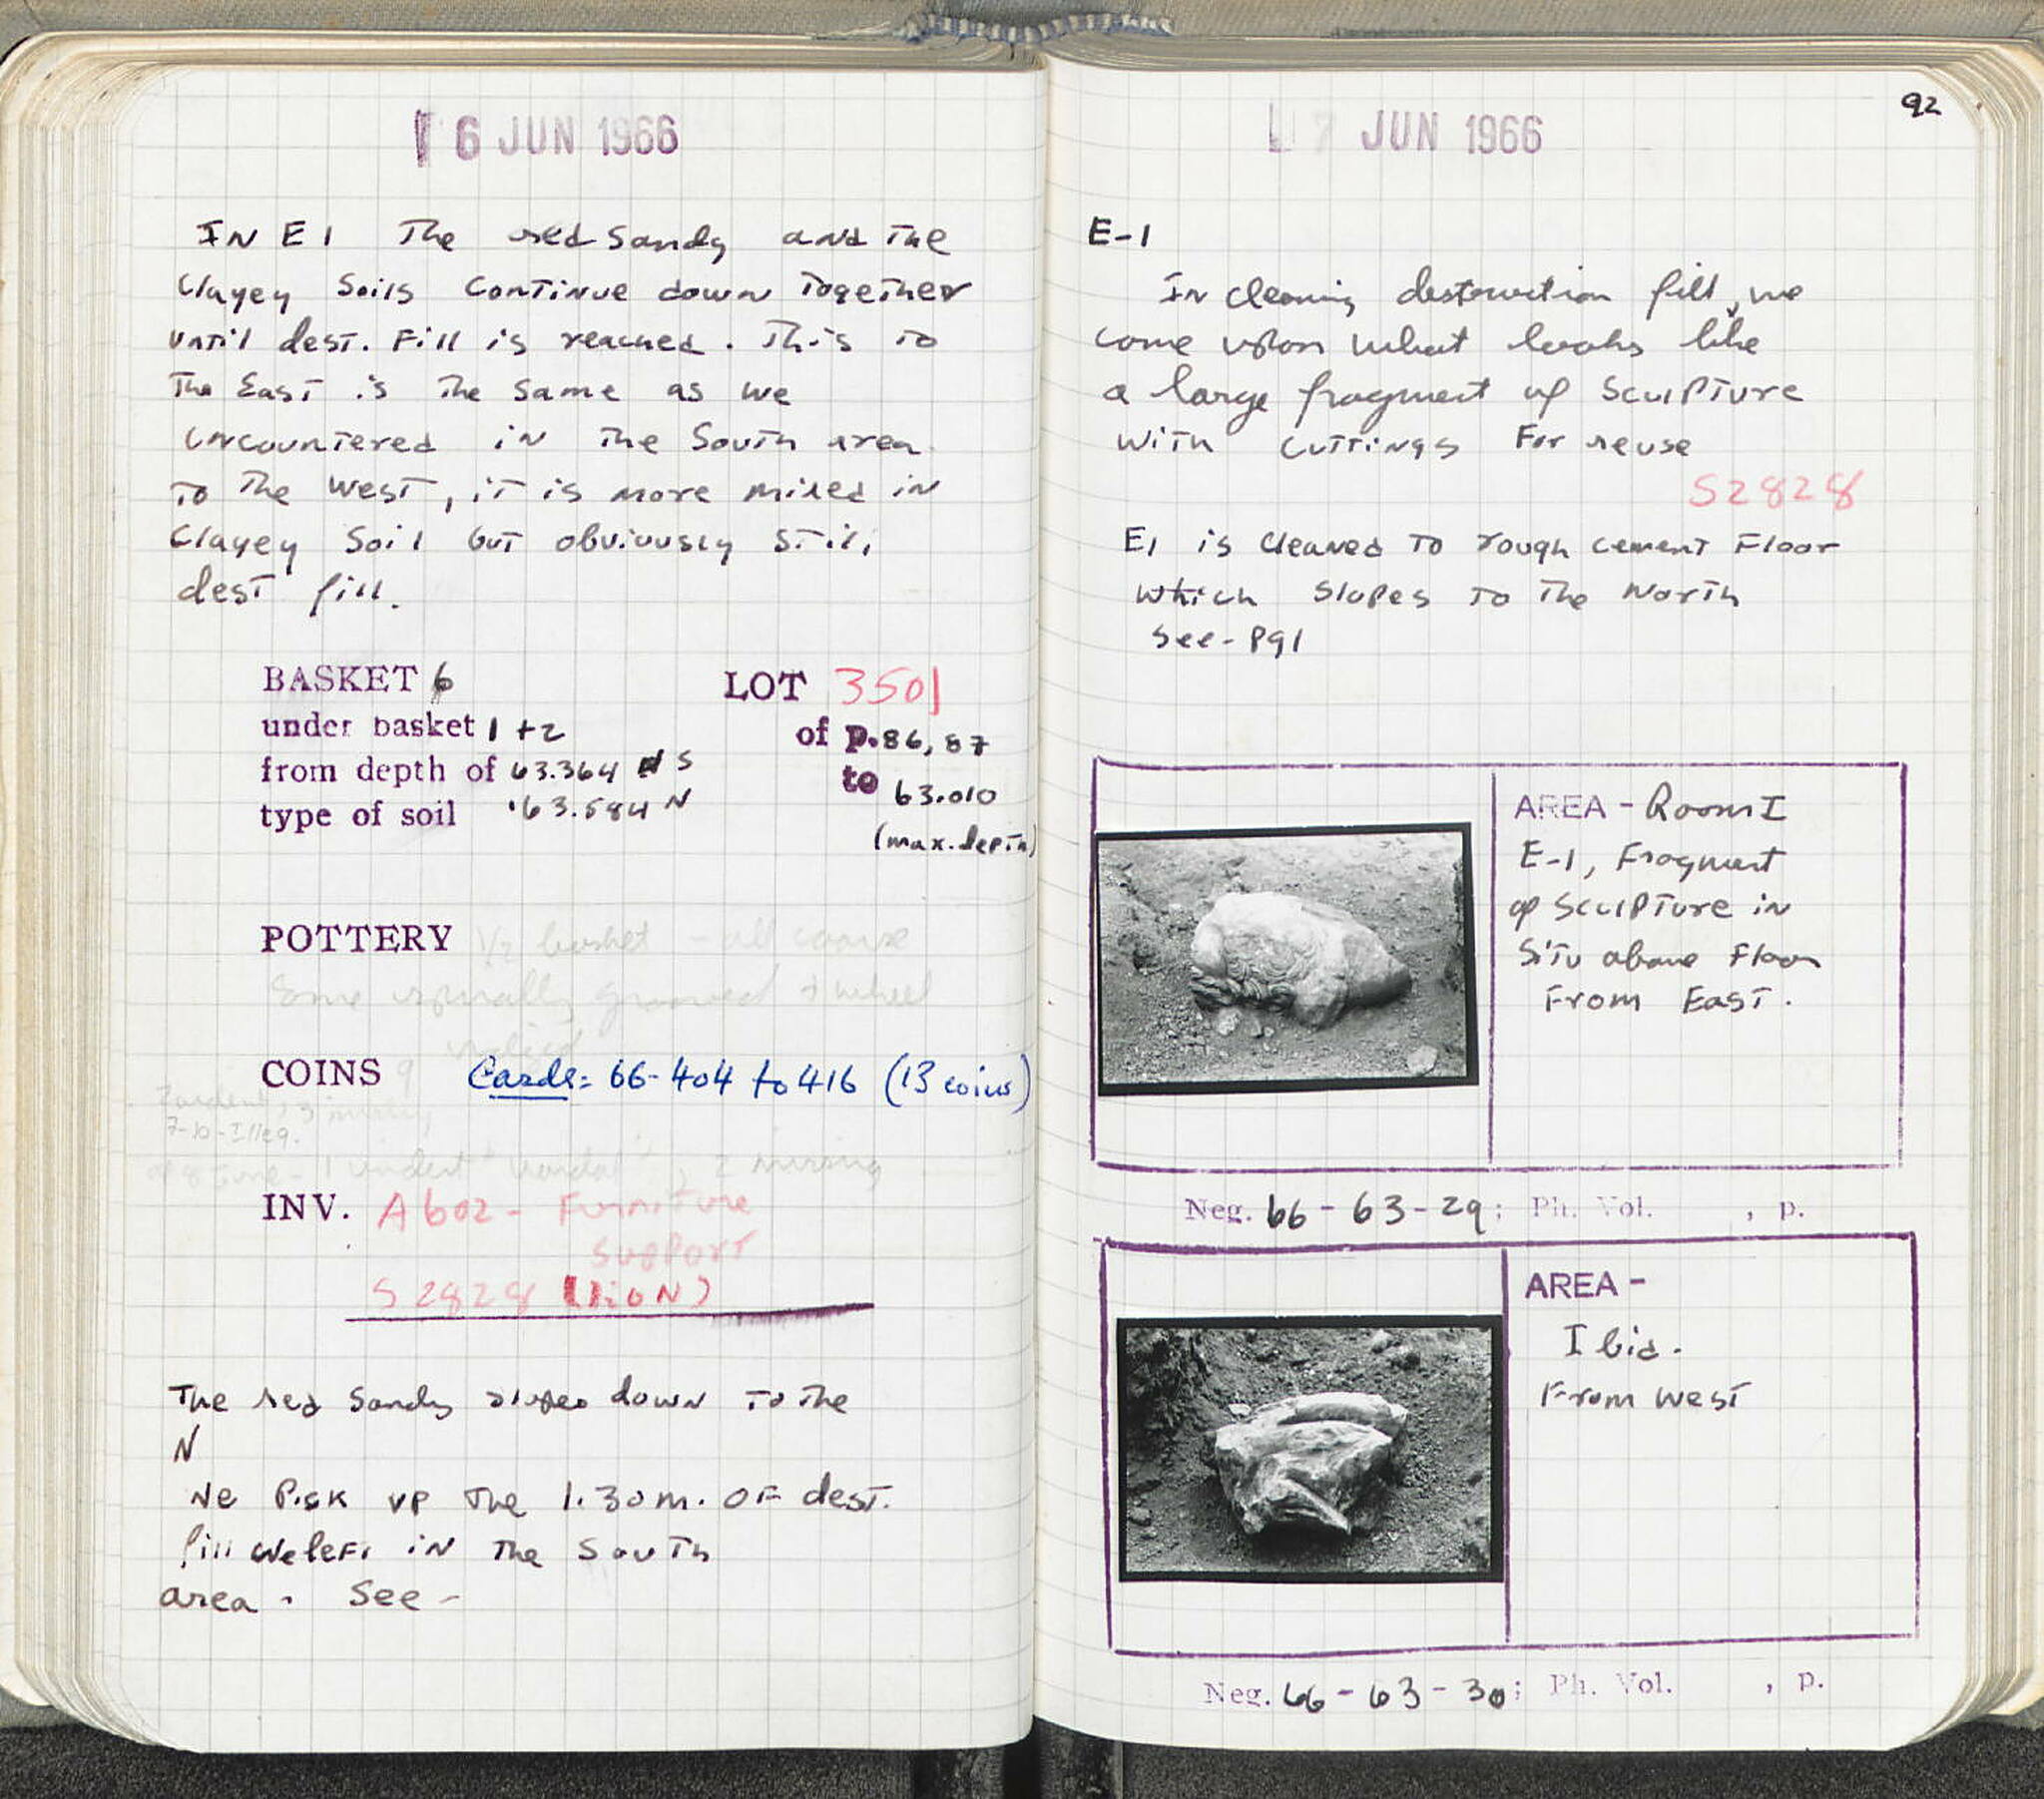 6 JUN 1966
IN E1 The red Sandy and The
Clayey Soils Continue down Together
until dest. Fill is reached. This to
The East is The Same as we
encountered in The South area.
To The West, it is more mixed in
Clayey Soil but obviously still
dest fill.
BASKET 6 LOT 3501
under basket 1+2 of p. 86, 87
from depth of 63.364 S to 63.010
type of soil 63.584 N (max.depth)
POTTERY 1/2 basket - all coarse
Some spirally grooved + wheel
COINS 9 Cards: 66-404 to 416 (13 coins)
7-10-Illeg.
1 unident "Vandal", 2 missing
INV. A602 - Furniture
support
S2828 (lion)
The red Sandy slopes down To The
N
We Pick up The 1.30m. OF dest.
fill we left in The South
area. See -
92
JUN 1966
E-1
In cleaning destruction fill, we
come upon what looks like
a large fragment of Sculpture
With Cuttings For reuse
S2828
E1 is Cleaned To rough cement Floor
which Slopes To The North
See - P91
AREA - Room I
E-1, Fragment
of Sculpture in
Situ above Floor
From East.
Neg. 66-63-29; Ph. Vol. , p.
AREA -
Ibid.
From West
Neg. 66-63-30; Ph. Vol. , p.